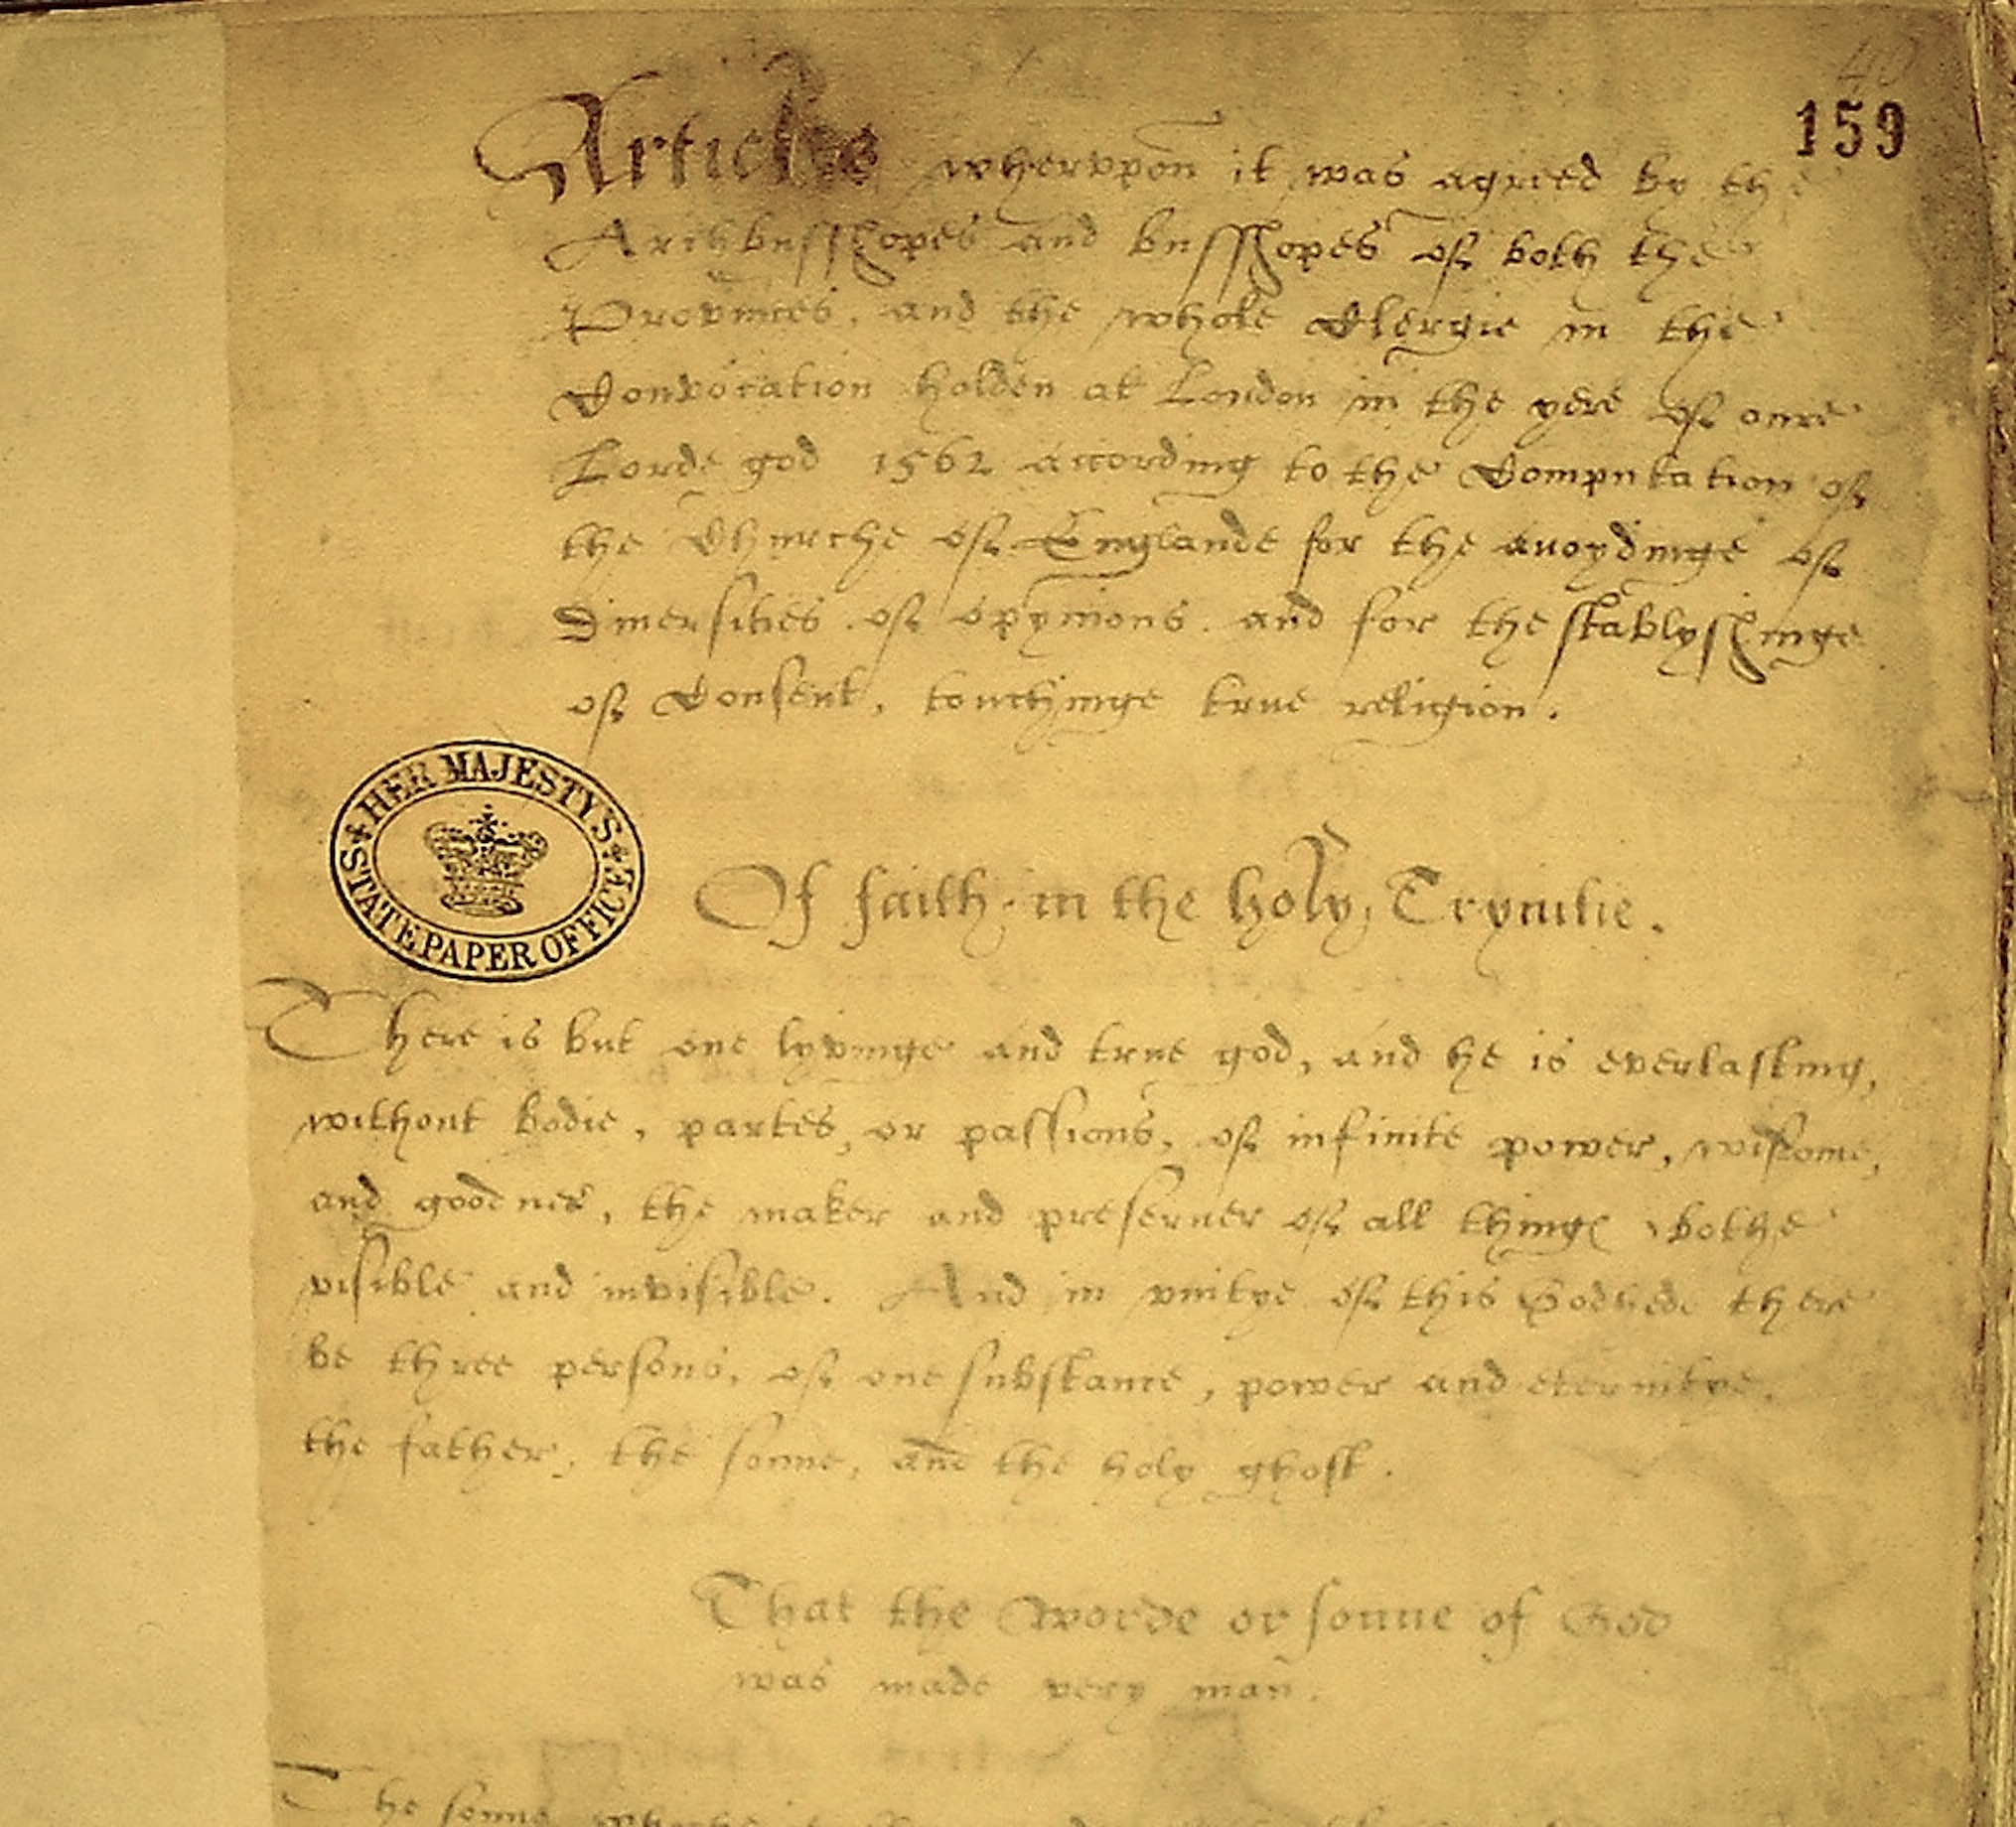 40
159
Articles whervpon it was agreed by the
Archbusshopes and busshopes of both the
Provinces, and the whole Clergie in the
Convocation holden at London in the yere of oure
Lorde god 1562 according to the Computation of
the Churche of Englande for the auoydinge of
Diuersities of opynions. and for the stablyshinge
of Consent, touchinge true religion.
HER MAJESTY'S STATE PAPER OFFICE
Of faith in the holy Trynitie.
There is but one lyvinge and true god, and he is everlasting,
without bodie, partes, or passions, of infinite power, wisdome,
and goodnes, the maker and preseruer of all things bothe
visible and invisible. And in vnitye of this Godhede there
be three persons, of one substance, power and eternitye.
the father, the sonne, and the holy ghost.
That the Worde or sonne of God
was made very man.
The sonne